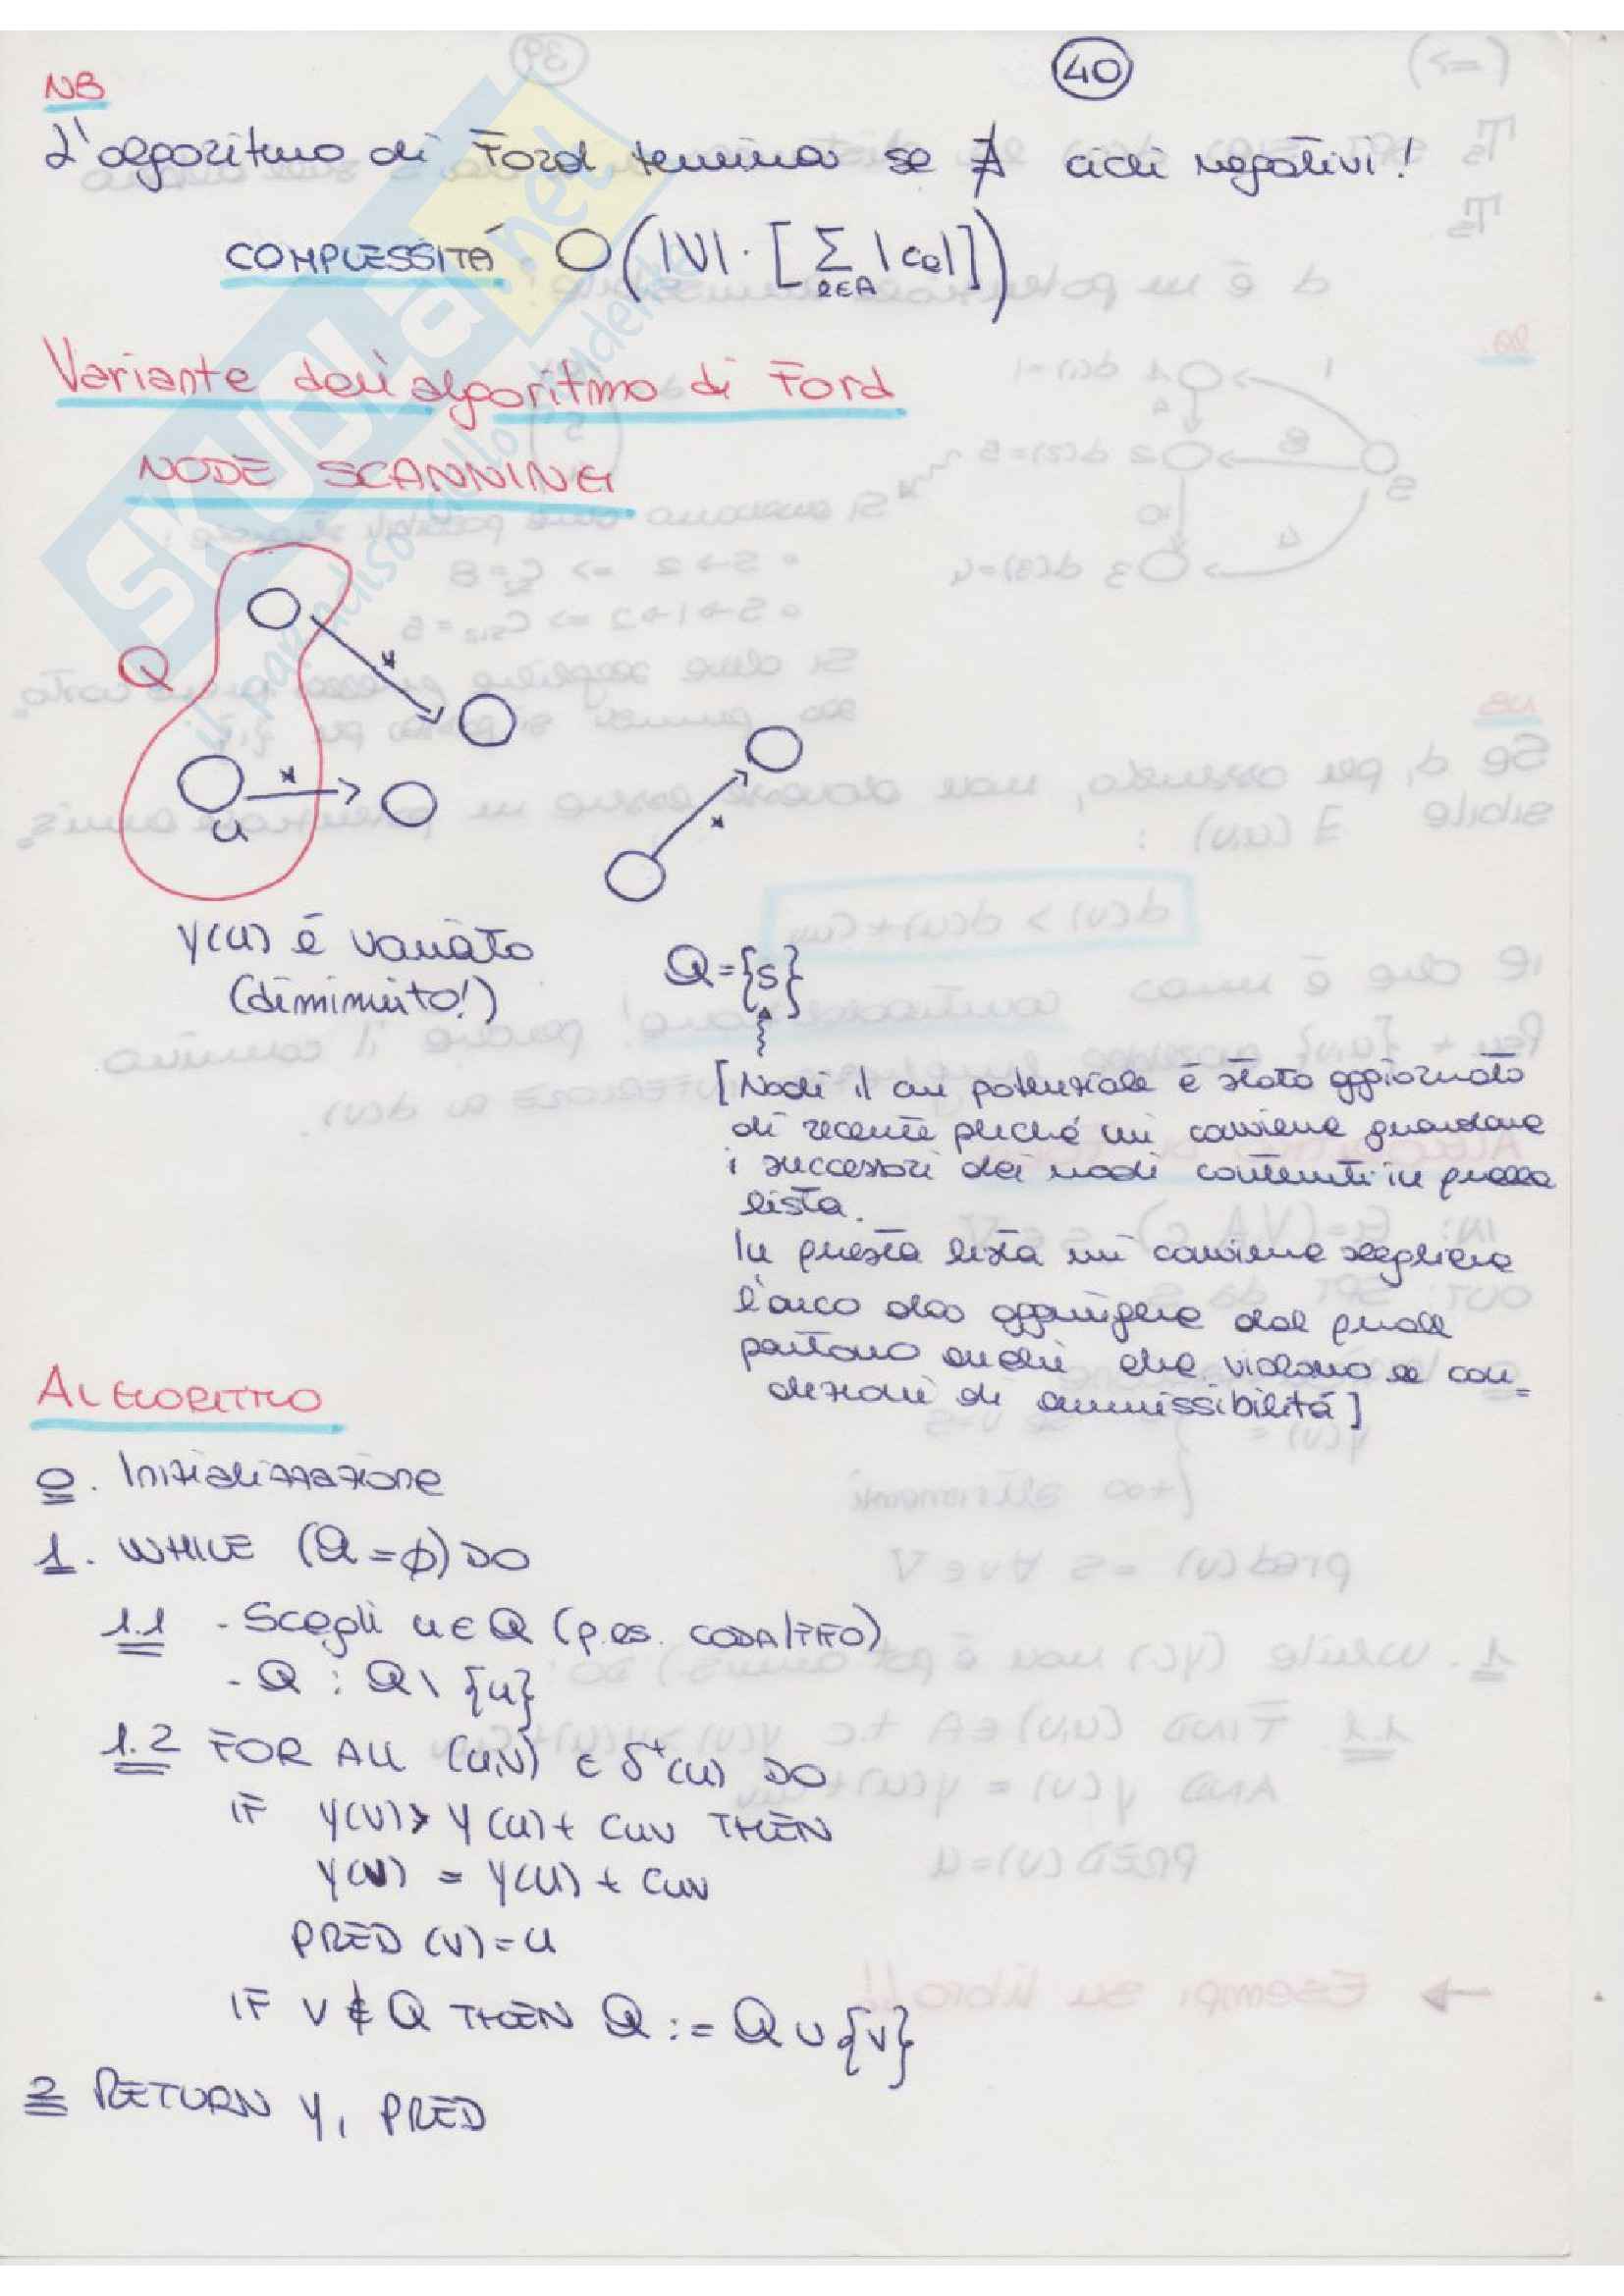 40
NB
L'algoritmo di Ford termina se ∄ cicli negativi!
COMPLESSITÁ O(|V|·[Σ_{e∈A} |ce|])
Variante dell'algoritmo di Ford
NODE SCANNING
Q
*
*
u
*
y(u) è variato
(diminuito!)
Q={s}
[Nodi il cui potenziale è stato aggiornato
di recente perché mi conviene guardare
i successori dei nodi contenuti in quella
lista.
In questa lista mi conviene scegliere
l'arco da aggiungere dal quale
partono archi che violano le con=
dizioni di ammissibilitá]
ALGORITMO
0. Inizializzazione
1. WHILE (Q=∅) DO
1.1 - Scegli u∈Q (p.es. CODA/FIFO)
- Q : Q\{u}
1.2 FOR ALL (u,v) ∈ δ⁺(u) DO
IF y(v)> y(u)+ cuv THEN
y(v) = y(u) + cuv
PRED (v)=u
IF v∉Q THEN Q := Q∪{v}
2 RETURN y, PRED
SKUOLA.net
il paradiso dello studente